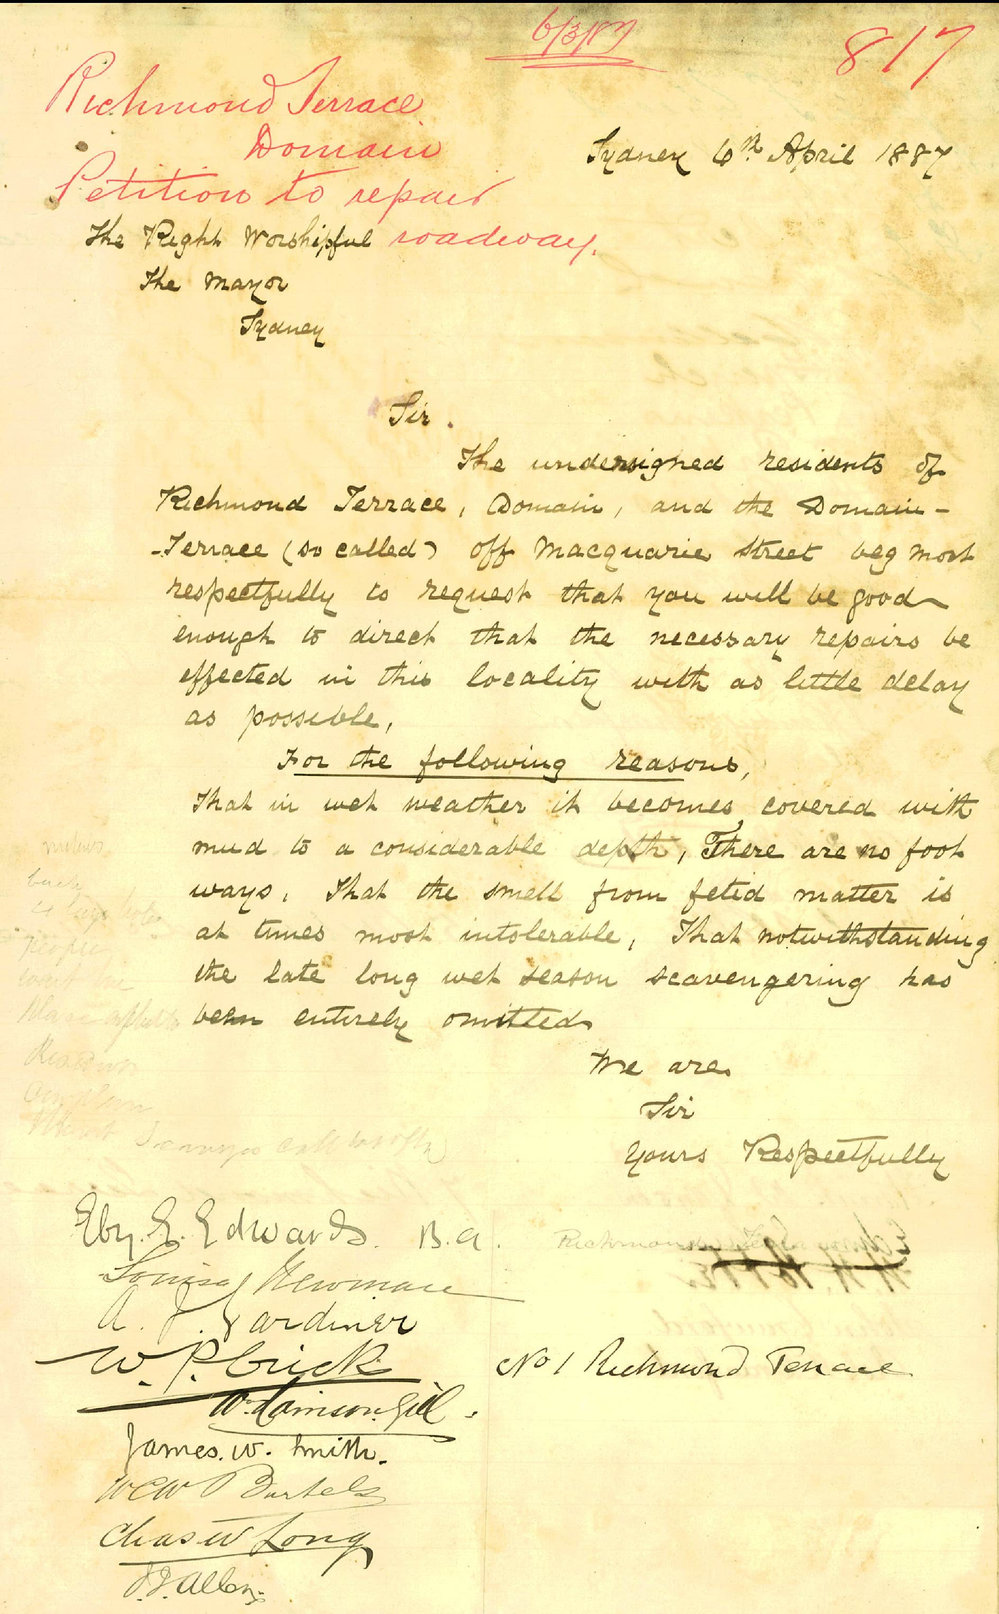 6/3/87
817
Richmond Terrace
Domain
Petition to repair
roadway.
Sydney 6th April 1887
The Right Worshipful
The Mayor
Sydney
Sir.
The undersigned residents of
Richmond Terrace, Domain, and the Domain-
-Terrace (so called) off Macquarie Street beg most
respectfully to request that you will be good
enough to direct that the necessary repairs be
effected in this locality with as little delay
as possible,
For the following reasons,
That in wet weather it becomes covered with
mud to a considerable depth, There are no foot
ways. That the smell from fetid matter is
at times most intolerable, That notwithstanding
the late long wet season scavengering has
been entirely omitted
We are
Sir
Yours Respectfully
Eby. E. Edwards. B.A.
Louisa Newman
A. J. Gardiner
W. P. Crick No 1 Richmond Terrace
Gill.
James. W. Smith.
WCW Bartels
Chas W Long
J. J. Allen